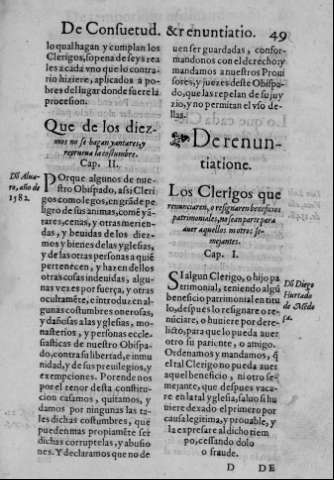 De Consuetud. & renuntiatio. 49
lo qual hagan y cumplan los
Clerigos, so pena de seys rea
les a cada vno que lo contra-
rio hiziere, aplicados a po-
bres del lugar donde fuere la
procesion.
Que de los diez-
mos no se hagan yantares, y
reprueua la costumbre.
Cap. II.
Dō Alua-
ro, año de
1582.
POrque algunos de nue-
stro Obispado, assi Cleri
gos como legos, en grāde pe
ligro de sus animas, comé y á-
tares, cenas, y otras merien-
das, y beuidas de los diez-
mos y bienes delas yglesias,
y de las otras personas a quié
pertenecen, y hazen dellos
otras cosas indeuidas, algu-
nas vezes por fuerça, y otras
ocultaméte, e introduzen al-
gunas costumbres onerosas,
y dañosas a las yglesias, mo-
nasterios, y personas eccle-
siasticas de nuestro Obispa-
do, contra su libertad, e inmu
nidad, y de sus preuilegios, y
exempciones. Porende nos
por el tenor desta constitu-
cion casamos, quitamos, y
damos por ningunas las ta-
les dichas costumbres, que
pueden mas propiaméte ser
dichas corruptelas, y abusio
nes. Y declaramos que no de
uen ser guardadas, confor-
mandonos con el derecho: y
mandamos a nuestros Proui
sores, y juezes deste Obispa-
do, que las repelan de su juy
zio, y no permitan el vso de-
llas.
De renun-
tiatione.
Los Clerigos que
renunciaren, o resignaren beneficios
patrimoniales, no sean parte para
auer aquellos ni otros se-
mejantes.
Cap. I.
Dō Diego
Hurtado
de Mēdo
ça.
SI algun Clerigo, o hijo pa
trimonial, teniendo algū
beneficio patrimonial en titu
lo, despues lo resignare o re-
nūciare, o huuiere por dere-
licto, para que lo pueda auer
otro su pariente, o amigo.
Ordenamos y mandamos, q̄
el tal Clerigo no pueda auer
aquel beneficio, ni otro se-
mejante, que despues vaca-
re en la tal yglesia, saluo si hu
uiere dexado el primero por
causa legitima, y prouable, y
la expresare al dicho tiem
po, cessando dolo
o fraude.
D DE